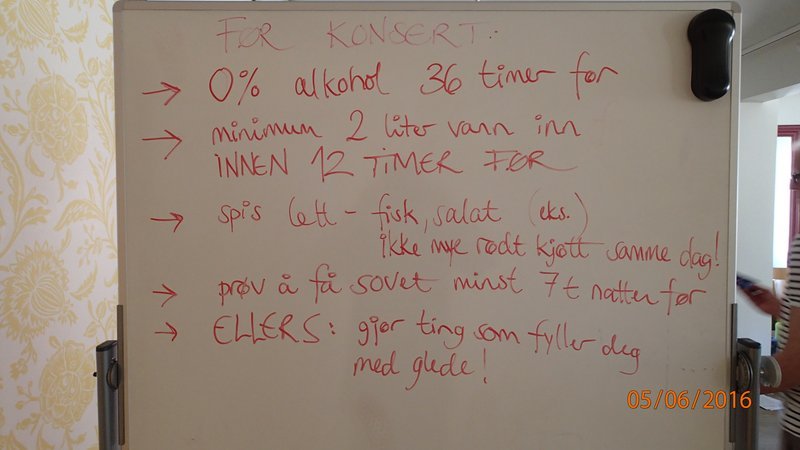 FØR KONSERT:
→ 0% alkohol 36 timer før
→ minimum 2 liter vann inn
INNEN 12 TIMER FØR
→ spis lett - fisk, salat (eks.)
ikke mye rødt kjøtt samme dag!
→ prøv å få sovet minst 7t natten før
→ ELLERS: gjør ting som fyller deg
med glede!
05/06/2016